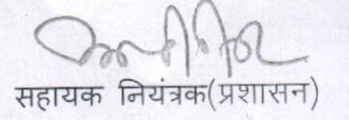 सहायक नियंत्रक(प्रशासन)